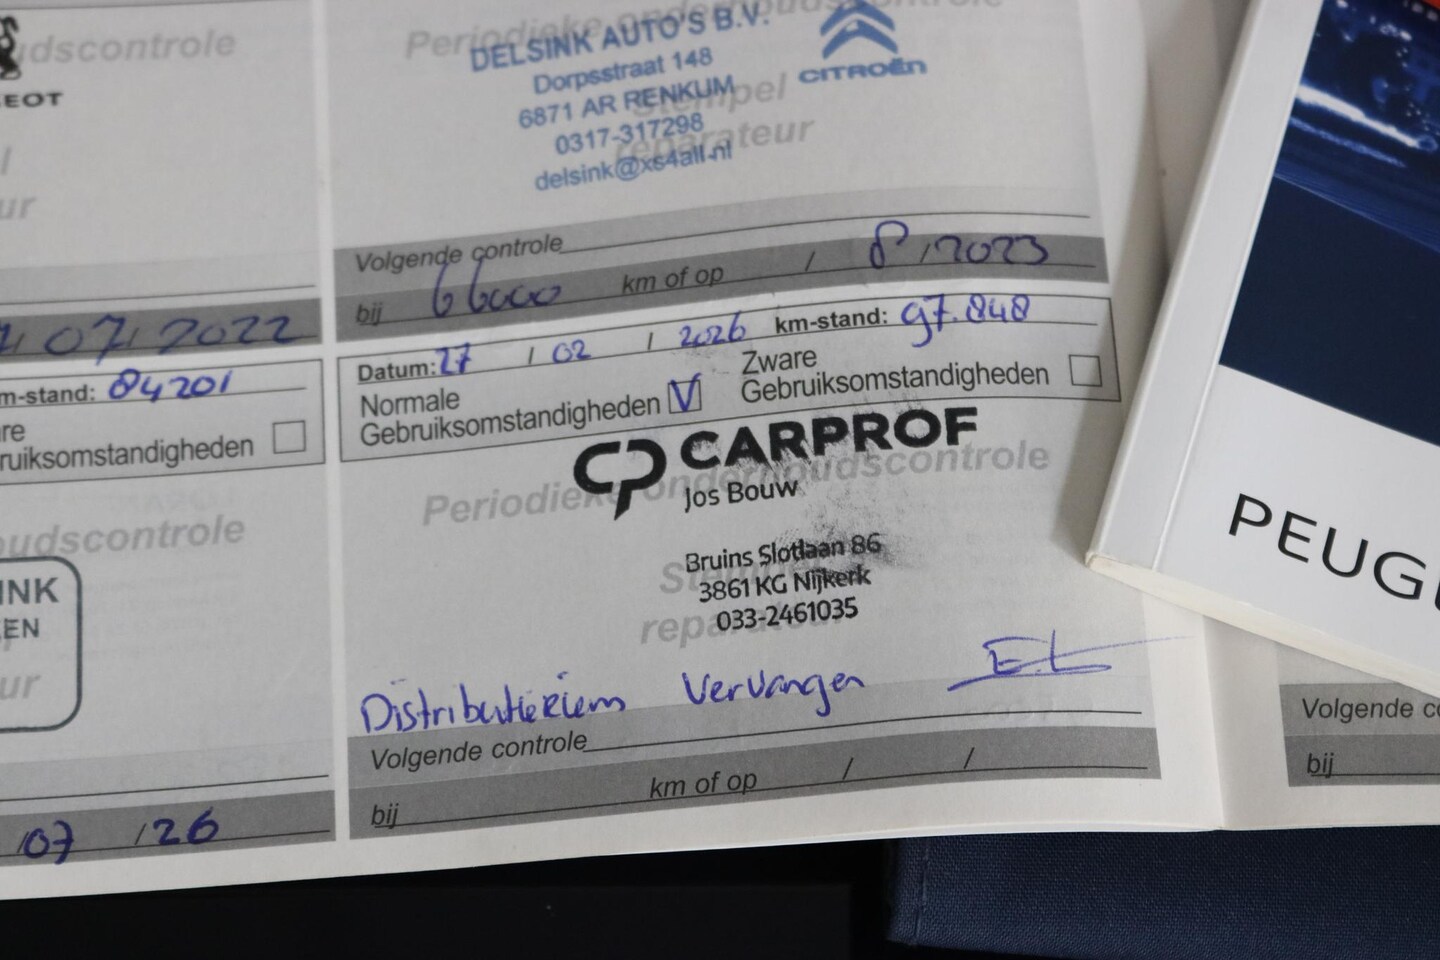 udscontrole
EOT
ur
07/2022
m-stand: 84201
re
ruiksomstandigheden
oudscontrole
INK
EN
ur
/07 /26
Periodieke onderhoudscontrole
DELSINK AUTO'S B.V.
Dorpsstraat 148
6871 AR RENKUM
0317-317298
delsink@xs4all.nl
CITROËN
Stempel
reparateur
Volgende controle
bij 66000 km of op / 8 / 2023
Datum: 27 / 02 / 2026 km-stand: 97.848
Normale
Gebruiksomstandigheden V
Zware
Gebruiksomstandigheden
CP CARPROF
Jos Bouw
Periodieke onderhoudscontrole
Bruins Slotlaan 86
3861 KG Nijkerk
033-2461035
Stempel
reparateur
Distributieriem Vervangen
Volgende controle
bij km of op / /
PEUG
Volgende c
bij